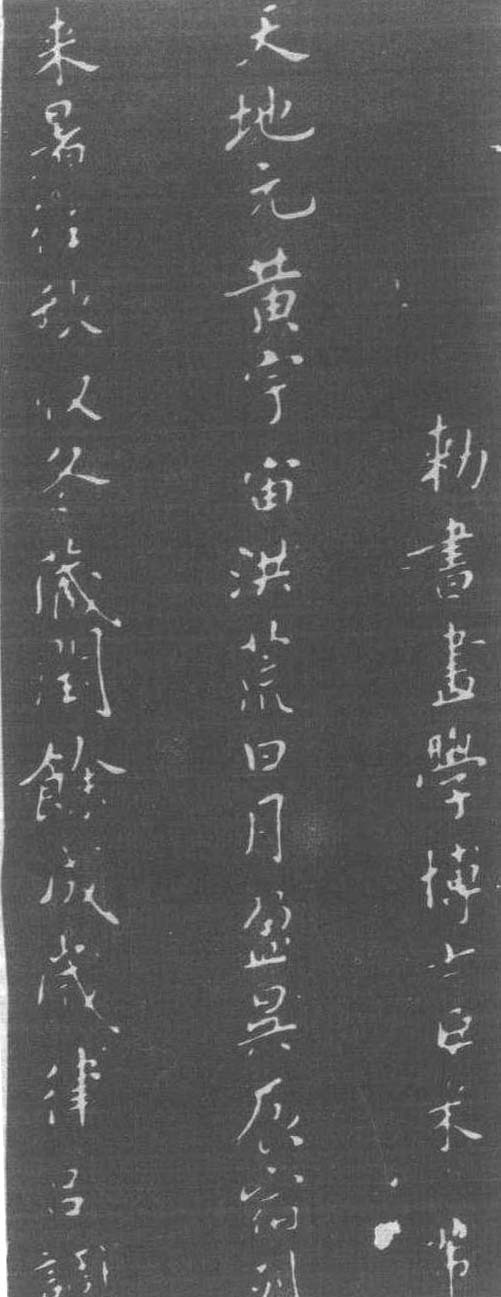 勑書畫學博士臣米芾
天地元黄宇宙洪荒日月盈昃辰宿列
来暑往秋收冬藏閏餘成歲律吕調